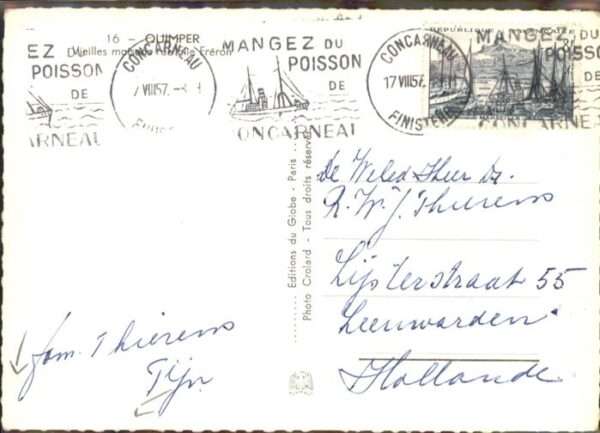 16 - QUIMPER
Vieilles maisons rue Elie Fréron
EZ
POISSON
DE
ARNEAU
CONCARNEAU
7 VIII57.
MANGEZ DU
POISSON
DE
CONCARNEAU
CONCARNEAU
17 VIII57.
FINISTERE
MANGEZ DU
POISSON
DE
CONCARNE
Editions du Globe - Paris
Photo Crolard - Tous droits réservés
De Weled Heer Dr.
R. W. J. Thierens
Lijsterstraat 55
Leeuwarden
Hollande
fam. Thierens